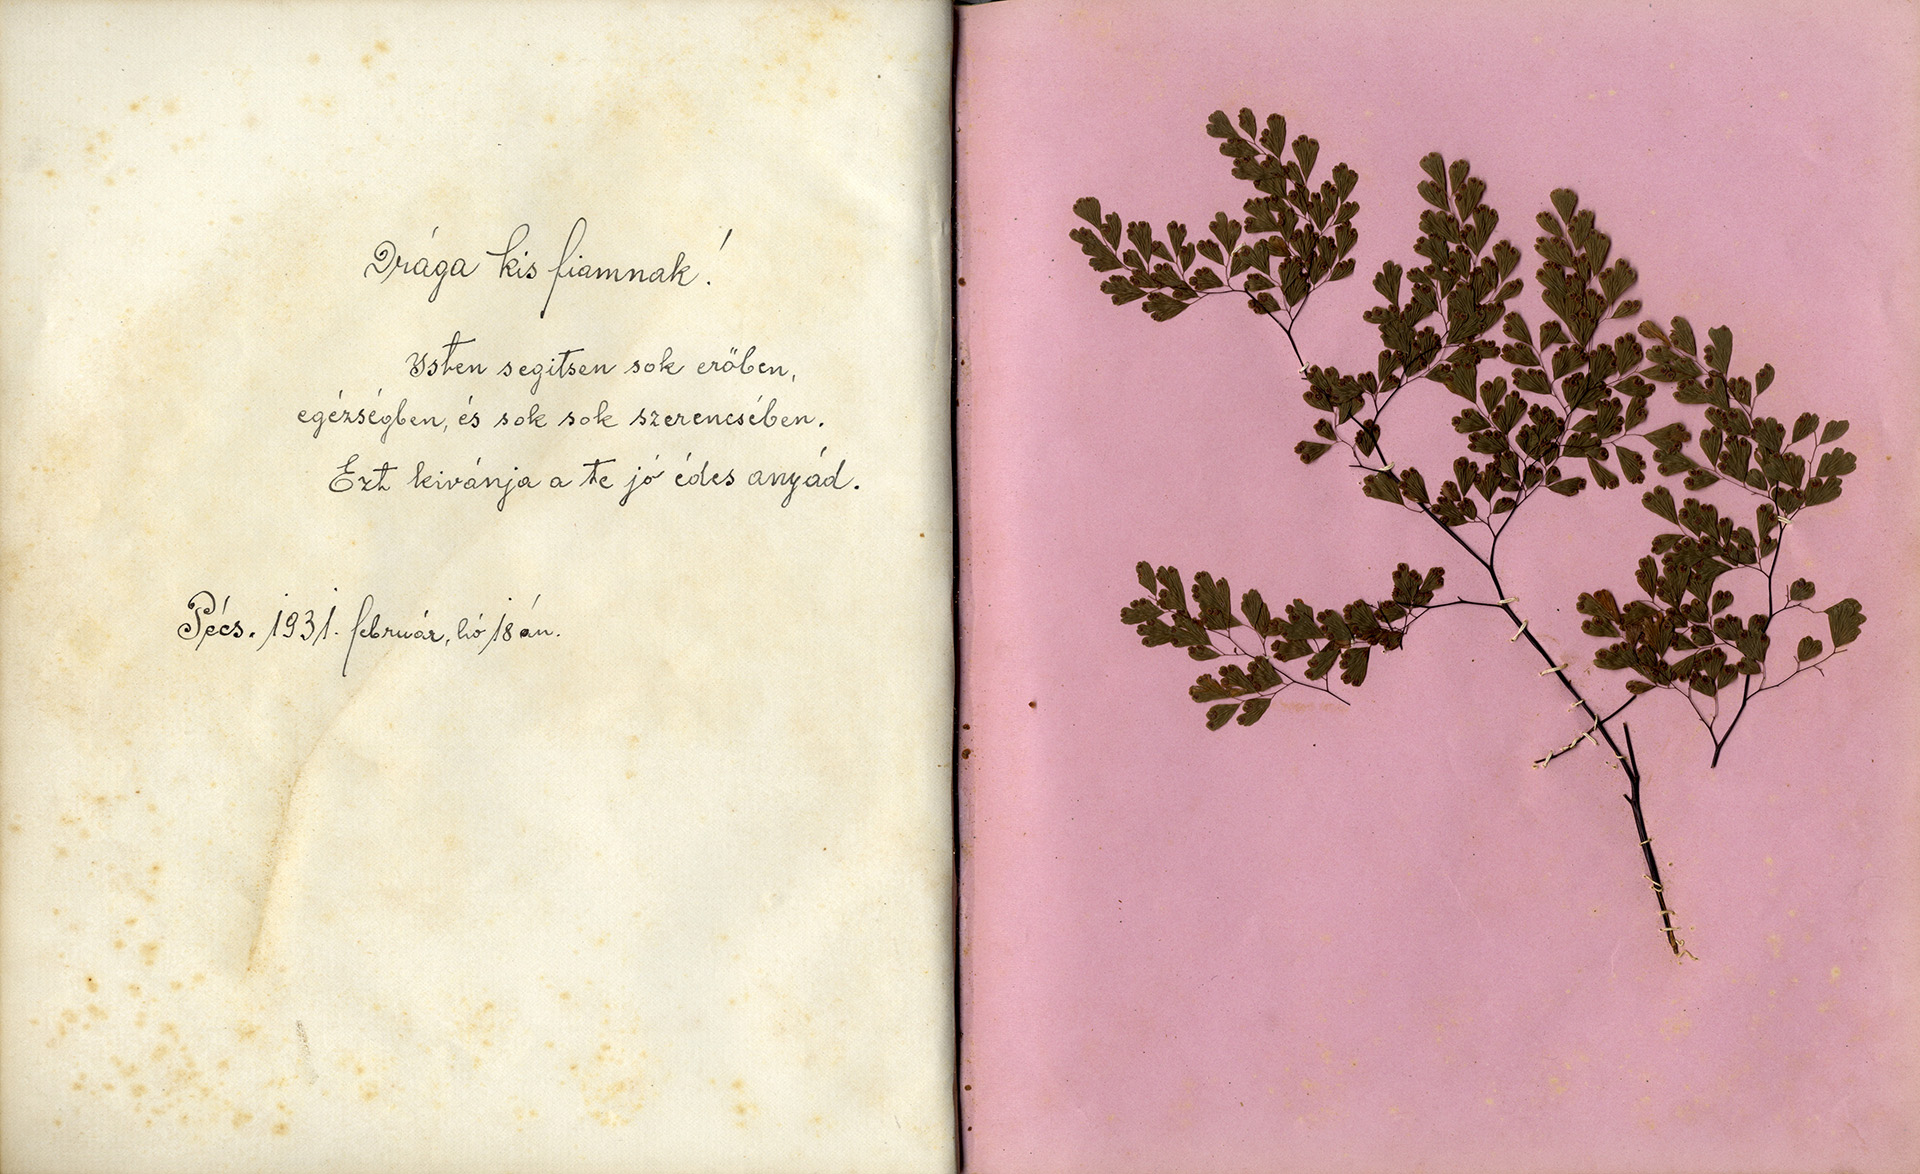 Drága kis fiamnak!
Isten segitsen sok erőben,
egézségben, és sok sok szerencsében.
Ezt kivánja a te jó édes anyád.
Pécs. 1931. február, hó 18 án.